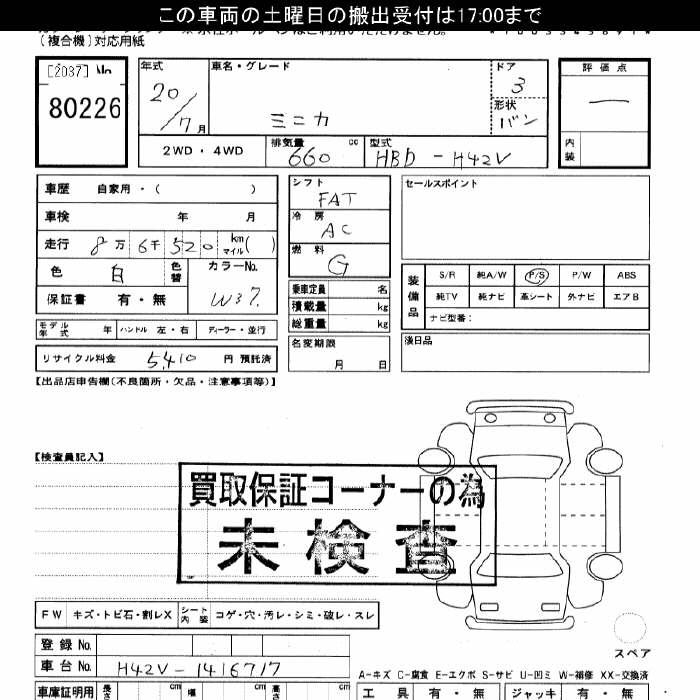 この車両の土曜日の搬出受付は17:00まで
(複合機)対応用紙
[2037] No
80226
年式
20/7月
車名・グレード
ミニカ
ドア
3
形状
バン
評価点
—
内装
2WD・4WD
排気量
660 cc
型式
HBD-H42V
車歴 自家用・( )
車検 年 月
走行 8万6千520 km マイル( )
色 白 色替
カラーNo.
W37.
保証書 有・無
モデル年式 年 ハンドル 左・右 ディーラー・並行
リサイクル料金 5,410 円 預託済
シフト
FAT
冷房
AC
燃料
G
乗車定員 名
積載量 kg
総重量 kg
名変期限
月 日
セールスポイント
装備品
S/R 純A/W P/S P/W ABS
純TV 純ナビ 革シート 外ナビ エアB
ナビ型番:
後日品
【出品店申告欄(不良箇所・欠品・注意事項等)】
【検査員記入】
買取保証コーナーの為
未検査
FW キズ・トビ石・割レX シート内装 コゲ・穴・汚レ・シミ・破レ・スレ
登録No.
車台No. H42V-1416717
車庫証明用 長さ cm 幅 cm 高さ cm
スペア
A-キズ C-腐食 E-エクボ S-サビ U-凹ミ W-補修 XX-交換済
工具 有・無 ジャッキ 有・無